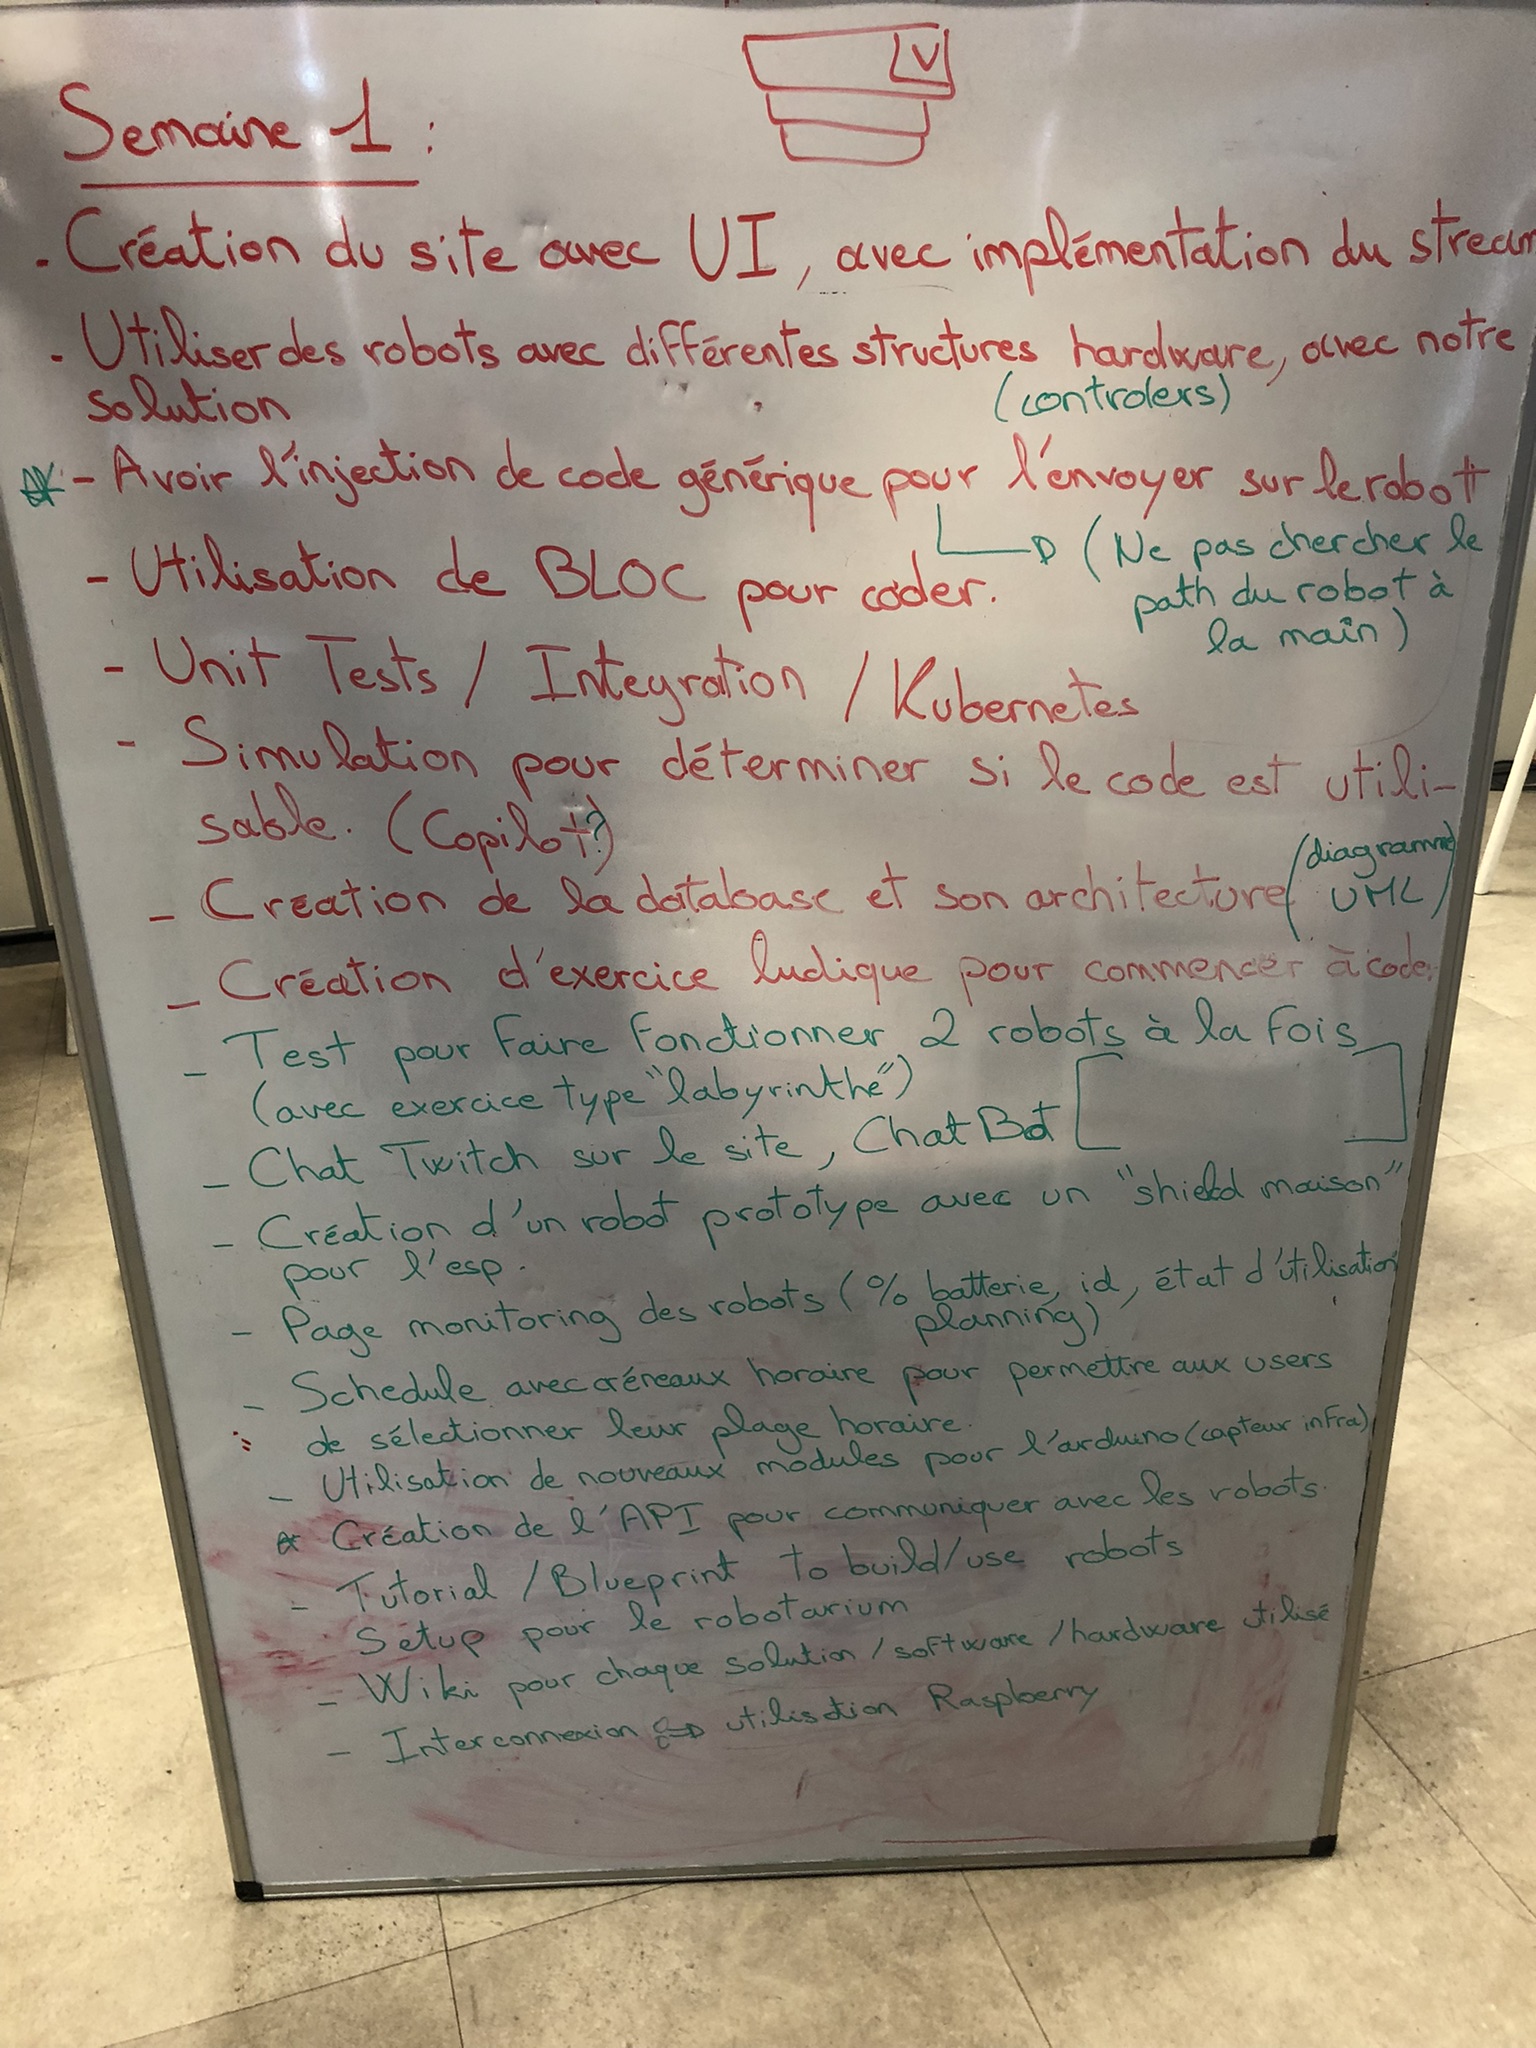 V
Semaine 1 :
. Création du site avec UI, avec implémentation du stream
- Utiliser des robots avec différentes structures hardware, avec notre
solution (controlers)
- Avoir l'injection de code générique pour l'envoyer sur le robot
(Ne pas chercher le
path du robot à
la main)
- Utilisation de BLOC pour coder.
- Unit Tests / Integration / Kubernetes
- Simulation pour déterminer si le code est utili-
sable. (Copilot?)
- Création de la database et son architecture (diagramme
UML)
- Création d'exercice ludique pour commencer à coder
- Test pour faire fonctionner 2 robots à la fois
(avec exercice type "labyrinthe")
- Chat Twitch sur le site, ChatBot [ ]
- Création d'un robot prototype avec un "shield maison"
pour l'esp.
- Page monitoring des robots (% batterie, id, état d'utilisation
planning)
- Schedule avec créneaux horaire pour permettre aux users
de sélectionner leur plage horaire.
- Utilisation de nouveaux modules pour l'arduino (capteur infra)
* Création de l'API pour communiquer avec les robots.
- Tutorial / Blueprint to build/use robots
Setup pour le robotarium
- Wiki pour chaque solution / software / hardware utilisé
- Interconnexion utilisation Raspberry